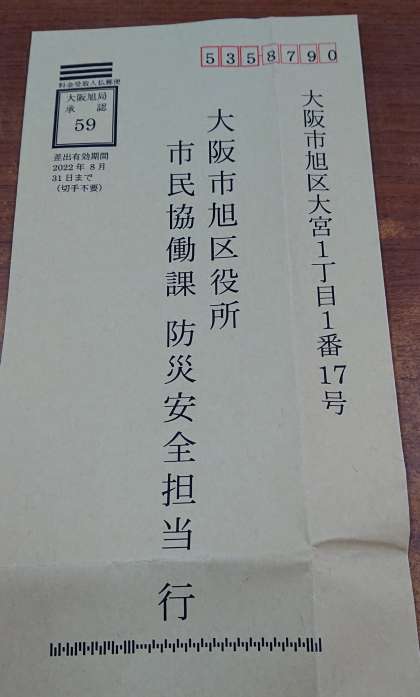 5358790
大阪市旭区大宮1丁目1番17号
大阪市旭区役所
市民協働課 防災安全担当 行
料金受取人払郵便
大阪旭局
承認
59
差出有効期間
2022年8月
31日まで
（切手不要）